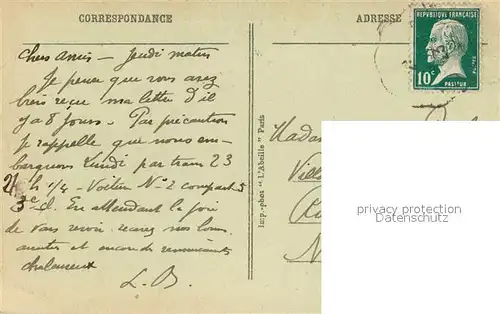 CORRESPONDANCE
ADRESSE
RÉPUBLIQUE FRANÇAISE
10c
POSTES
PASTEUR
Chers Amis — Jeudi matin
Je pense que vous avez
bien reçu ma lettre d'il
y a 8 jours. — Par précaution
je rappelle que nous em-
barquons Lundi par train 23
21 h 1/4 — Voiture No 2 compart 5
3e cl. En attendant la joie
de vous revoir recevez nos bonnes
amitiés et encore de remerciements
chaleureux
L. B.
Imp.-phot "L'Abeille" Paris
Madame
Villa
privacy protection
Persönlichkeitsschutz